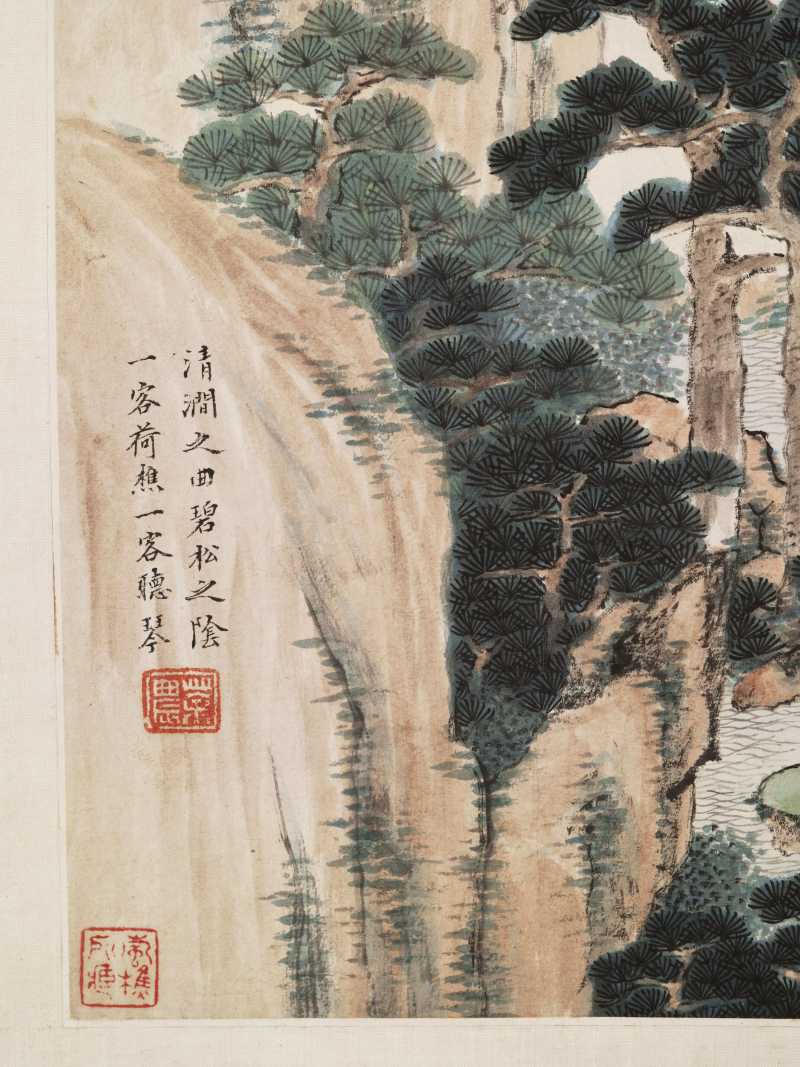 清澗之曲碧松之陰
一客荷樵一客聽琴